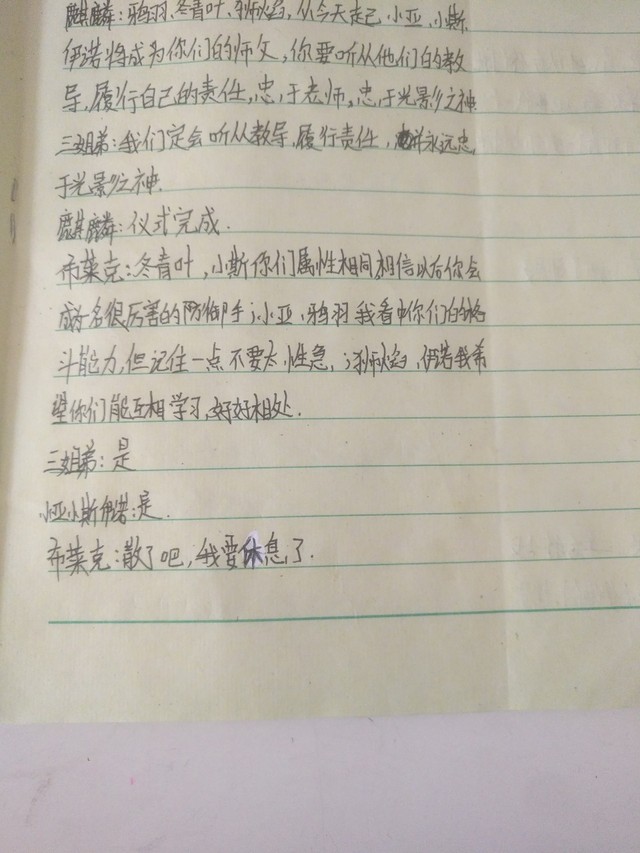 麒麟:鸦羽、冬青叶、狮焰,从今天走己,小亚、小斯、
伊诺将成为你们的师父,你要听从他们的教
导,履行自己的责任,忠于老师,忠于光景之神
三姐弟:我们定会听从教导,履行责任,并永远忠
于光景之神.
麒麟:仪式完成.
布莱克:冬青叶,小斯你们属性相同相信以后你会
成为一名很厉害的防御手;小亚、鸦羽我看中你们的格
斗能力,但记住一点不要太性急,;狮焰,伊诺我希
望你们能互相学习,好好相处.
三姐弟:是
小亚小斯伊诺:是.
布莱克:散了吧,我要休息了.